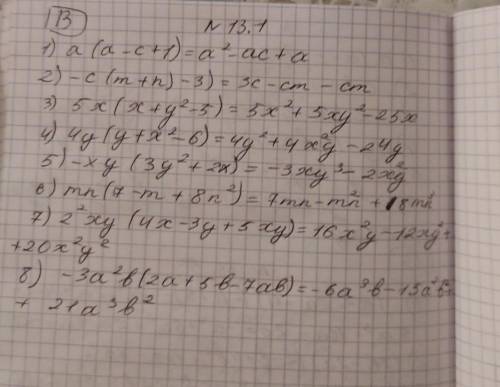 В
№ 13.1
1) a (a - c + 1) = a² - ac + a
2) - c (m + n) - 3) = 3c - cm - cm
3) 5x (x + y² - 5) = 5x² + 5xy² - 25x
4) 4y (y + x² - 6) = 4y² + 4x²y - 24y
5) - xy (3y² + 2x) = - 3xy³ - 2x²y
6) mn (7 - m + 8n²) = 7mn - m²n + 8mn
7) 2²xy (4x - 3y + 5xy) = 16x²y - 12xy² +
+ 20x²y²
8) - 3a²b (2a + 5b - 7ab) = - 6a³b - 15a²b² +
+ 21a³b²